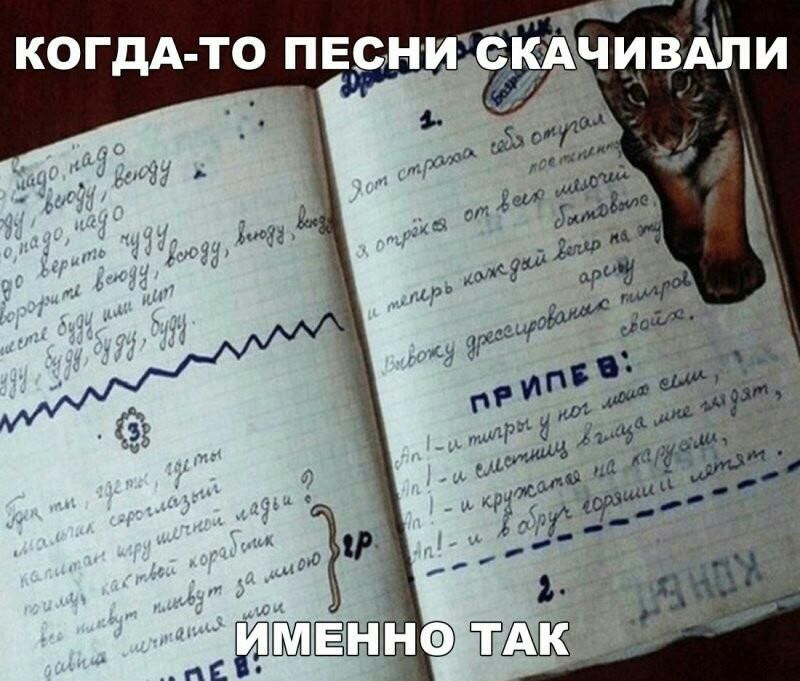 КОГДА-ТО ПЕСНИ СКАЧИВАЛИ
надо, надо
всюду, всюду
надо, надо
верить чуду
всюду, всюду, всюду
буду или нет
буду, буду, буду.
3
где ты, где ты
мальчик сероглазый
капитан игрушечной ладьи ?
как твой кораблик
все плывут за мною
давние мечтания мои
2р.
ПРИПЕВ:
1.
Я от страха себя отучал
постепенно,
я отрёкся от всех мелочей
бытовых,
и теперь каждый вечер на эту
арену
Вывожу дрессированых тигров
своих.
ПРИПЕВ:
Ап!-и тигры у ног моих сели,
Ап!-и с лестниц в глаза мне глядят,
Ап!-и кружатся на карусели,
Ап!-и в обруч горящий летят.
2.
КОНЕЦ
ИМЕННО ТАК